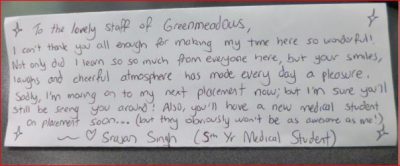 To the lovely staff of Greenmeadows,
I can't thank you all enough for making my time here so wonderful!
Not only did I learn so so much from everyone here, but your smiles,
laughs and cheerful atmosphere has made every day a pleasure.
Sadly, I'm moving on to my next placement now; but I'm sure you'll
still be seeing you around! Also, you'll have a new medical student
on placement soon... (but they obviously won't be as awesome as me!)
~ ♡ Srajan Singh (5th Yr Medical Student)